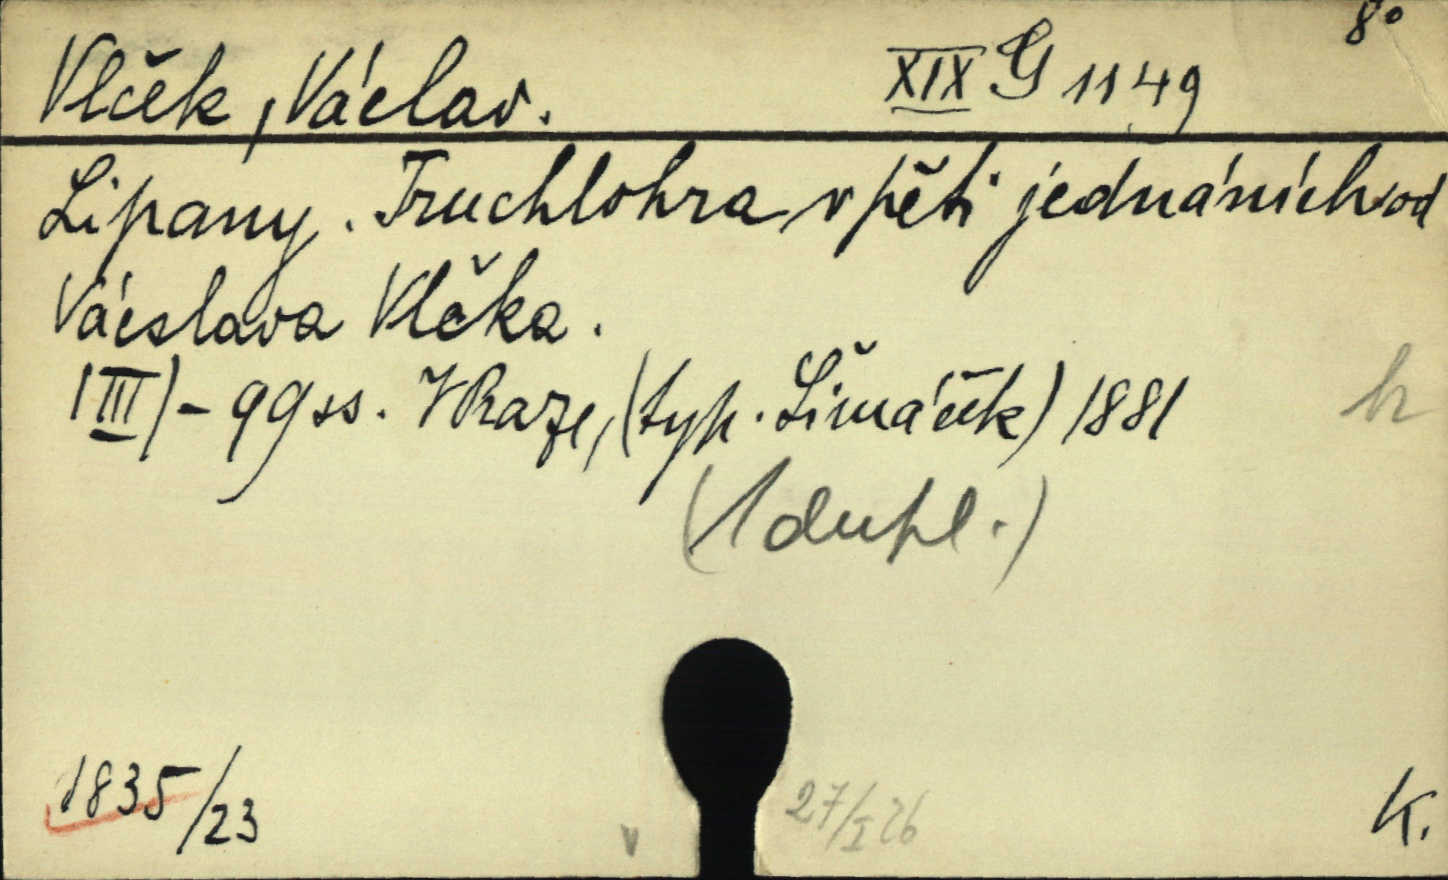 8°
Vlček, Václav.
XIX G 1149
Lipany. Truchlohra v pěti jednáních od
Vácslava Vlčka.
(III) - 99 ss. V Praze, (typ. Šimáček) 1881
h
(1 dupl.)
1835/23
v
27/I 26
K.